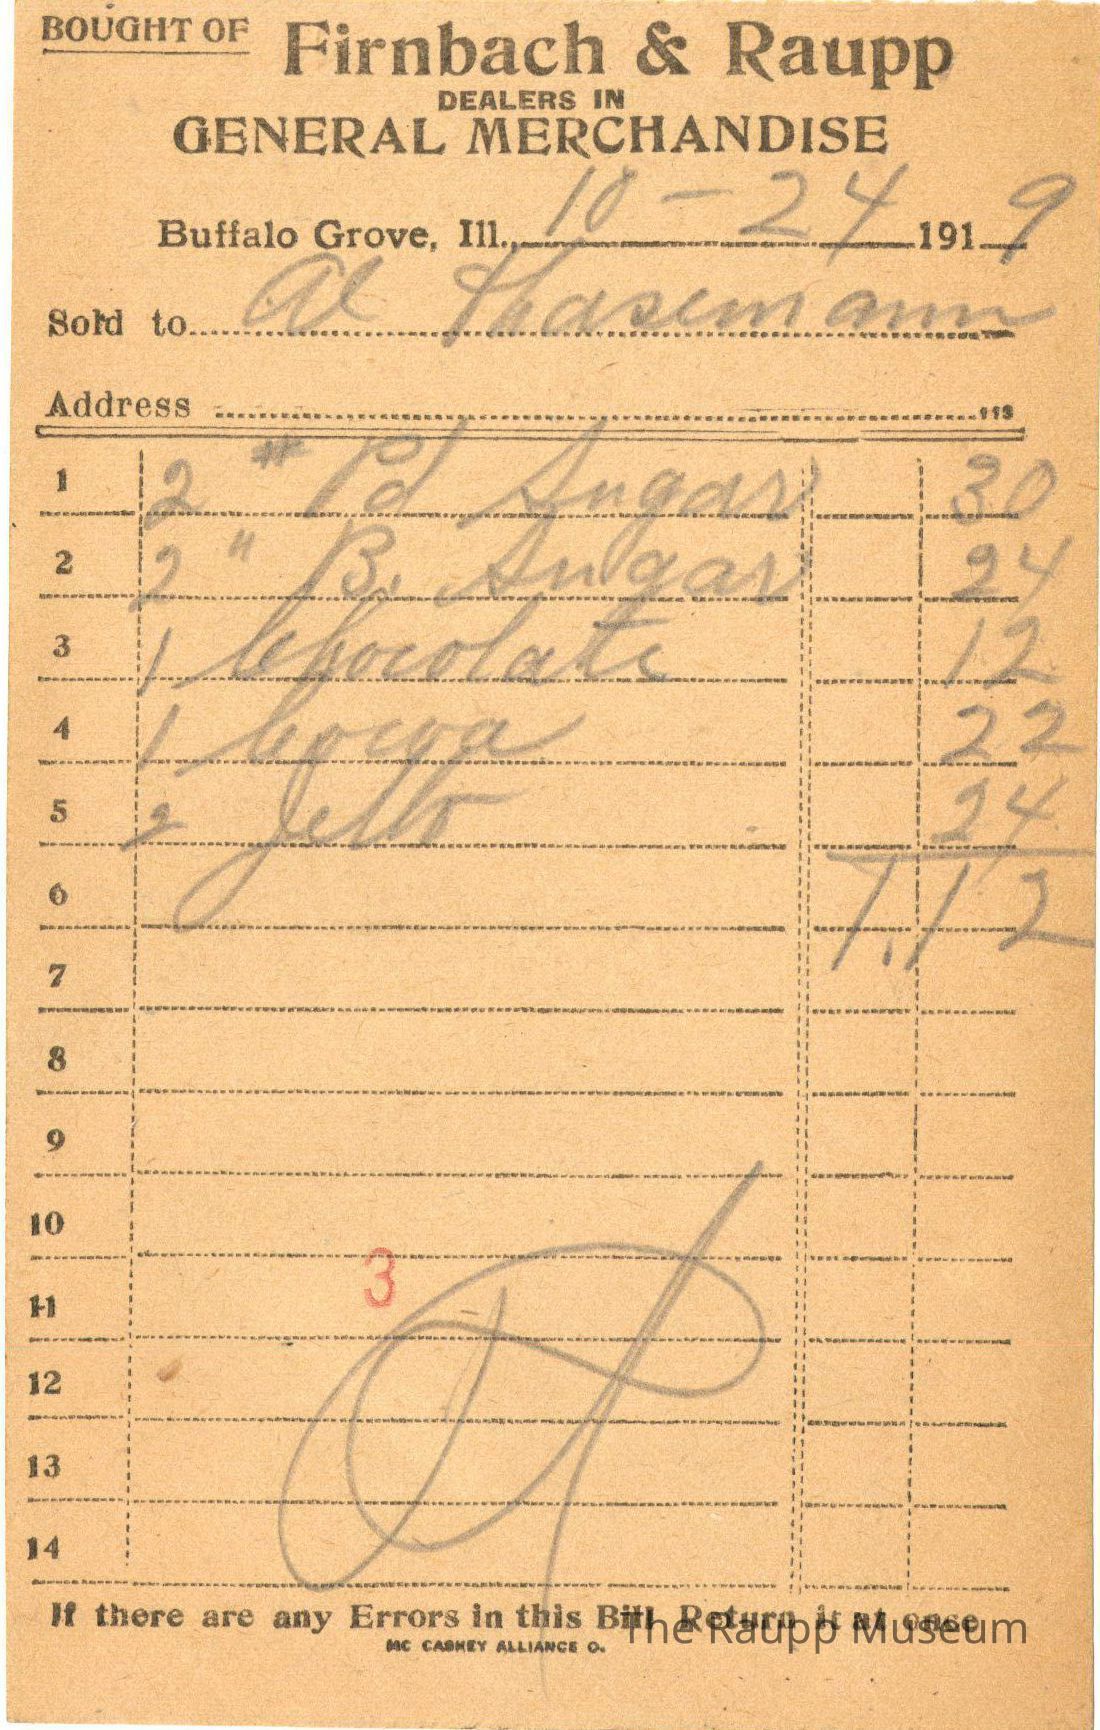 BOUGHT OF Firnbach & Raupp
DEALERS IN
GENERAL MERCHANDISE
Buffalo Grove, Ill., 10 - 24 1919
Sold to Al Thasemann
Address
113
1 2 # Pd Sugar 30
2 2 " B. Sugar 24
3 1 Chocolate 12
4 1 Cocoa 22
5 2 Jello 24
6 1.12
7
8
9
10
3
11
12
13
14
If there are any Errors in this Bill Return it at once
MC CASKEY ALLIANCE O.
The Raupp Museum